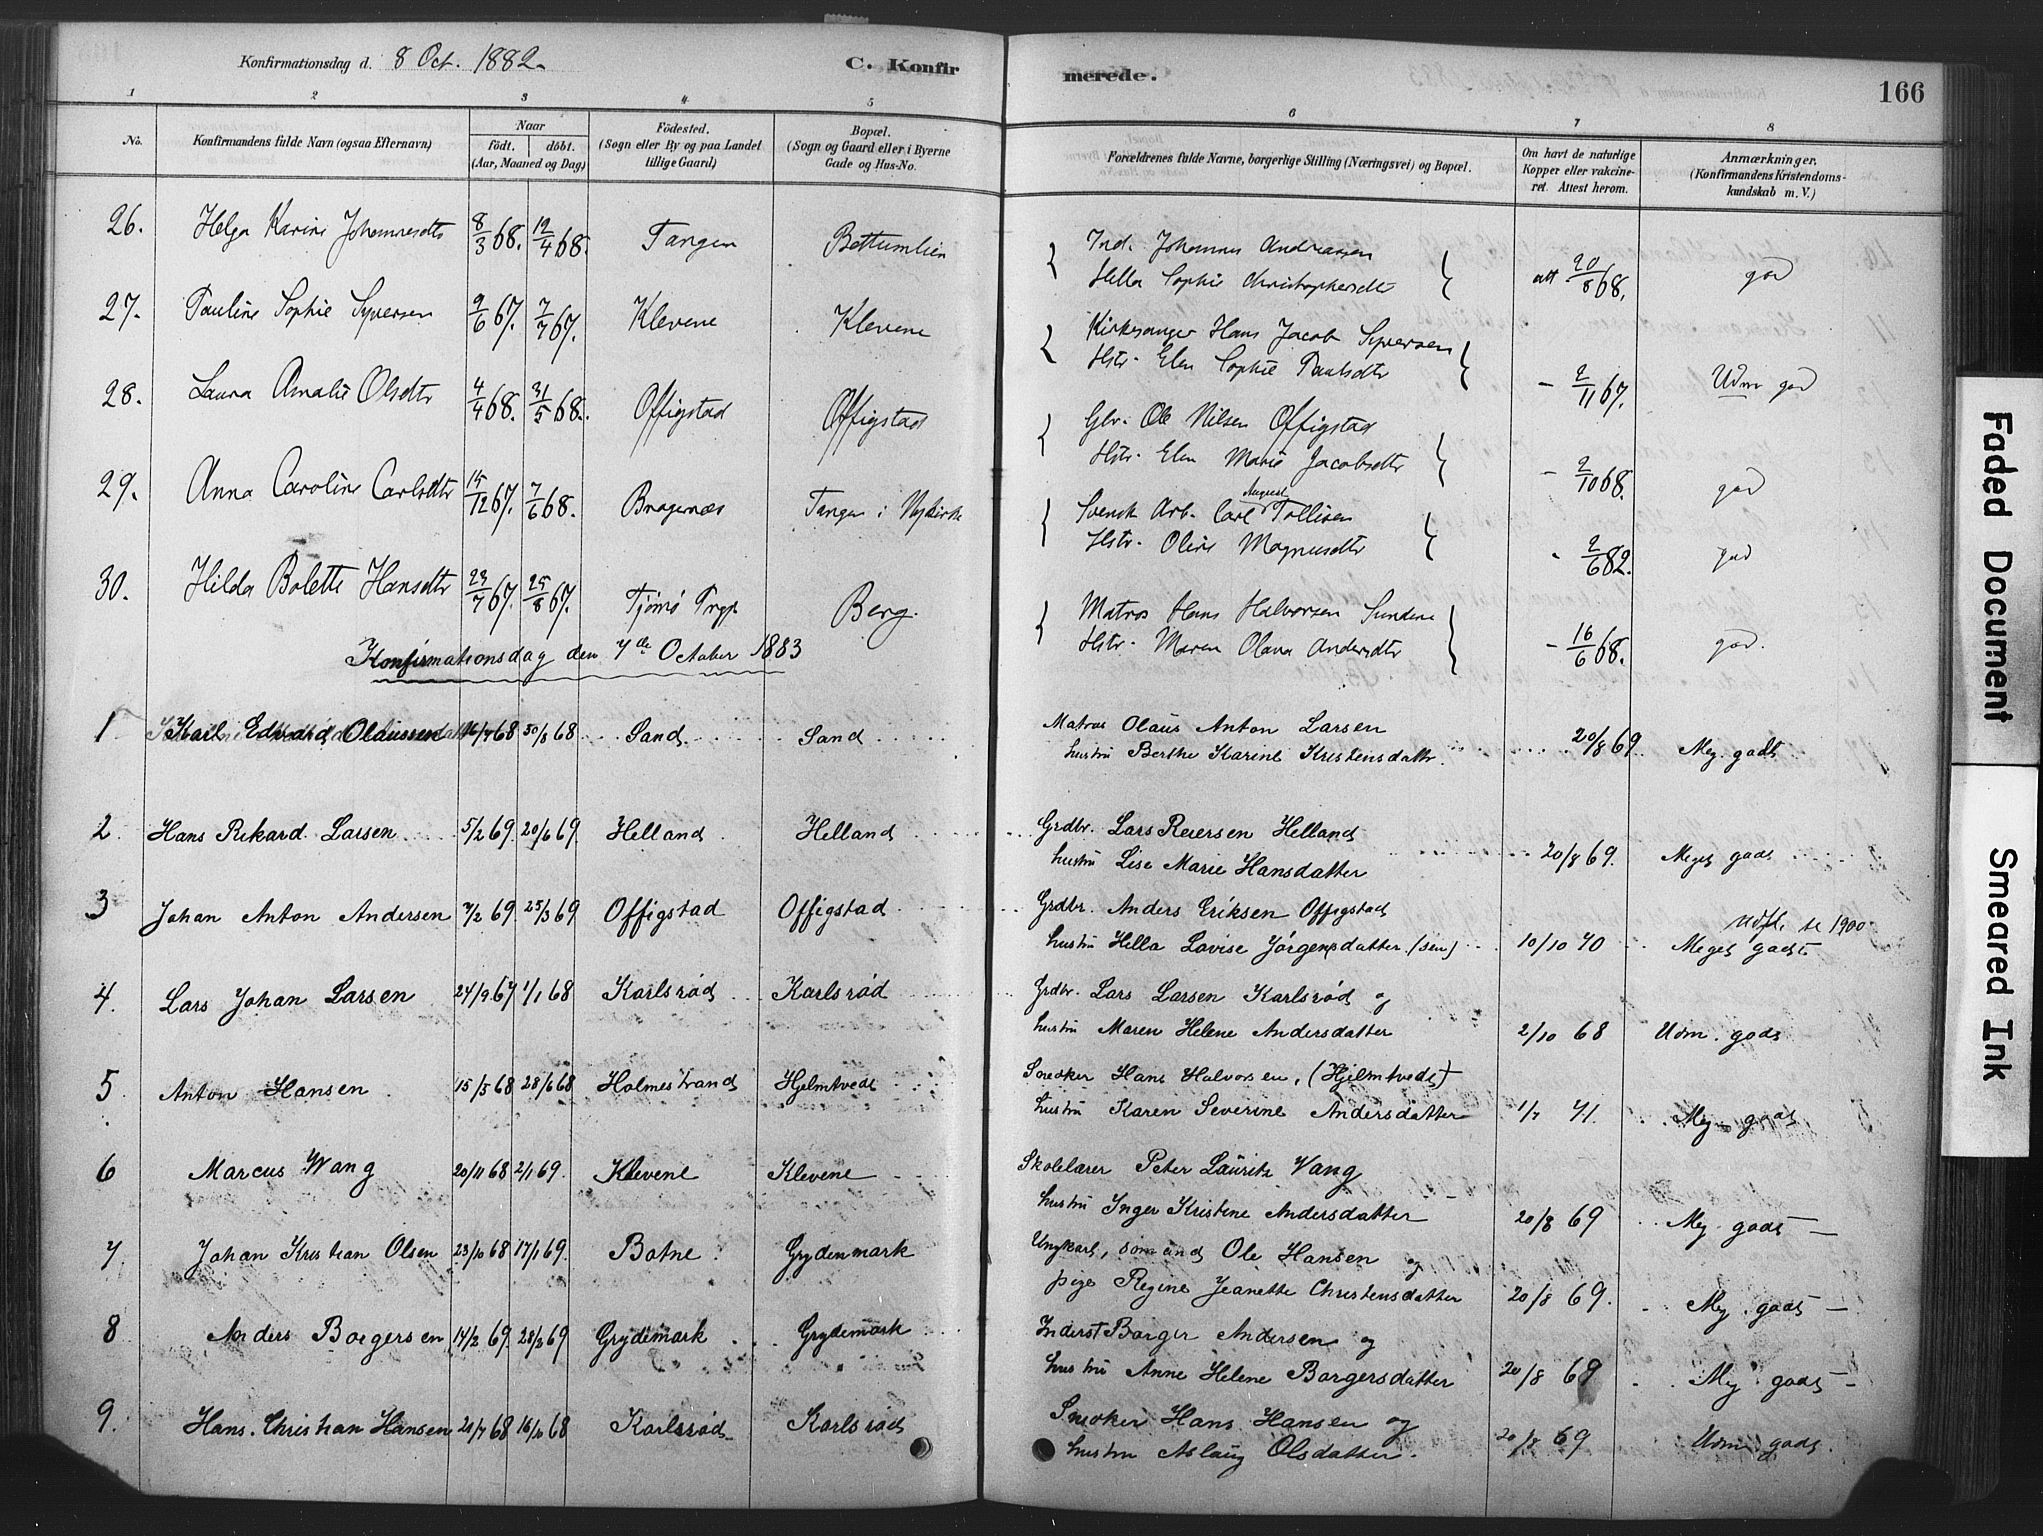 Konfirmationsdag d. 8 Oct. 1882. C. Konfirmerede. 166
1 2 3 4 5 6 7 8
No. Konfirmandens fulde Navn (ogsaa Efternavn) Naar født. døbt. (Aar, Maaned og Dag) Fødested. (Sogn eller By og paa Landet tillige Gaard) Bopæl. (Sogn og Gaard eller i Byerne Gade og Hus-No. Forældrenes fulde Navne, borgerlige Stilling (Næringsvei) og Bopæl. Om havt de naturlige Kopper eller vakcineret. Attest herom. Anmærkninger. (Konfirmandens Kristendomskundskab m. V.)
26. Helga Karine Johannesdtr 8/3 68. 12/4 68. Tangen Bettumlien Ind. Johannes Andreasen
Hella Sophie Christophersdtr att 20/8 68. god
27. Pauline Sophie Syversen 9/6 67. 7/7 67. Klevene Klevene Kirkesanger Hans Jacob Syversen
Hstr. Elen Sophie Paulsdtr - 2/11 67. Udm god
28. Laura Amalie Olsdtr 4/4 68. 31/5 68. Offigstad Offigstad Gbr. Ole Nilsen Offigstad
Hstr. Elen Marie Jacobsdtr - 2/10 68. god
29. Anna Caroline Carlsdtr 15/12 67. 7/6 68. Bragernæs Tangen i Nykirke Svensk Arb. Carl August Tollisen
Hstr. Oline Magnusdtr - 2/6 82. god
30. Hilda Bolette Hansdtr 23/7 67. 25/8 67. Tjømø Prgj. Berg. Matros Hans Halvorsen Sundene
Hstr. Maren Olava Andersdtr - 16/6 68. god.
Konfirmationsdag den 7de October 1883
1 Karl Edvard Olaussen 68 30/8 68 Sand Sand Matros Olaus Anton Larsen
hustru Berthe Karine Kristensdattr. 20/8 69 Meg. godt
2. Hans Rikard Larsen 5/2 69. 20/6 69. Helland Helland Grdbr. Lars Reiersen Helland
hustru Lise Marie Hansdatter 20/8 69. Meget godt
3 Johan Anton Andersen 7/2 69. 25/3 69 Offigstad Offigstad Grdbr. Anders Eriksen Offigstad
hustru Hella Lovise Jørgensdatter (sen) 10/10 70 Meget godt
1900
4. Lars Johan Larsen 24/9 67 1/1 68 Karlsrød Karlsrød Grdbr. Lars Larsen Karlsrød og
hustru Maren Helene Andersdatter 2/10 68 Udm. godt
5 Anton Hansen 15/5 68 28/6 68 Holmestrand Hjelmtvedt Snedker Hans Halvorsen, (Hjelmtvedt)
hustru Karen Severine Andersdatter 1/7 71. Meg godt
6 Marcus Wang 20/11 68 2/1 69. Klevene Klevene Skolelærer Peter Lauritz Vang
hustru Inger Kristine Andersdatter 20/8 69 Meg. godt
7 Johan Kristian Olsen 23/10 68 17/1 69. Botne Grydenmark Ungkarl, sømand Ole Hansen og
pige Regine Jeanette Christensdatter 20/8 69. Meg. godt
8 Anders Borgersen 14/2 69. 28/2 69 Grydemark Grydemark Inderst Borger Andersen og
hustru Anne Helene Borgersdatter 20/8 69 Meg. godt
9. Hans. Christian Hansen 21/7 68 16/8 68 Karlsrød Karlsrød Snedker Hans Hansen og
hustru Aslaug Olsdatter. 20/8 69 Udm godt.
Faded Document
Smeared Ink